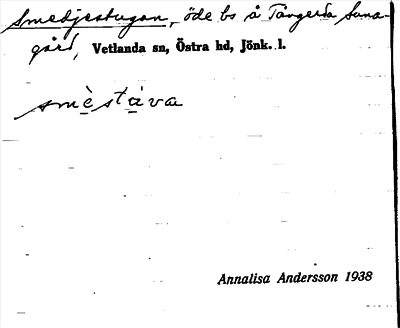 Smedjestugan, öde bs å Tångerda Suna-
gård, Vetlanda sn, Östra hd, Jönk. l.
smèstàva
Annalisa Andersson 1938